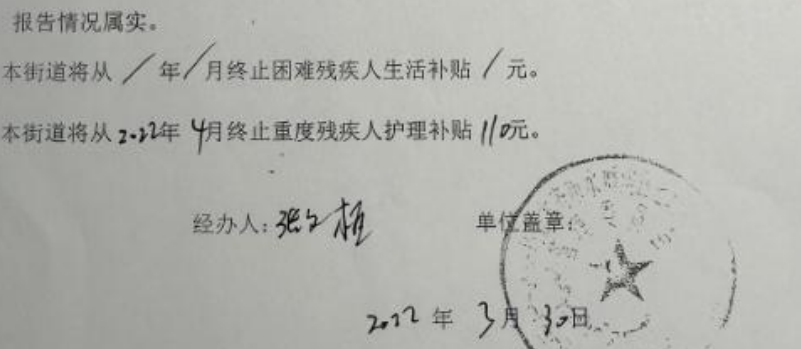 报告情况属实。
本街道将从 / 年 / 月终止困难残疾人生活补贴 / 元。
本街道将从2022年 4月终止重度残疾人护理补贴110元。
经办人:张文桓 单位盖章:
2022 年 3月 30日